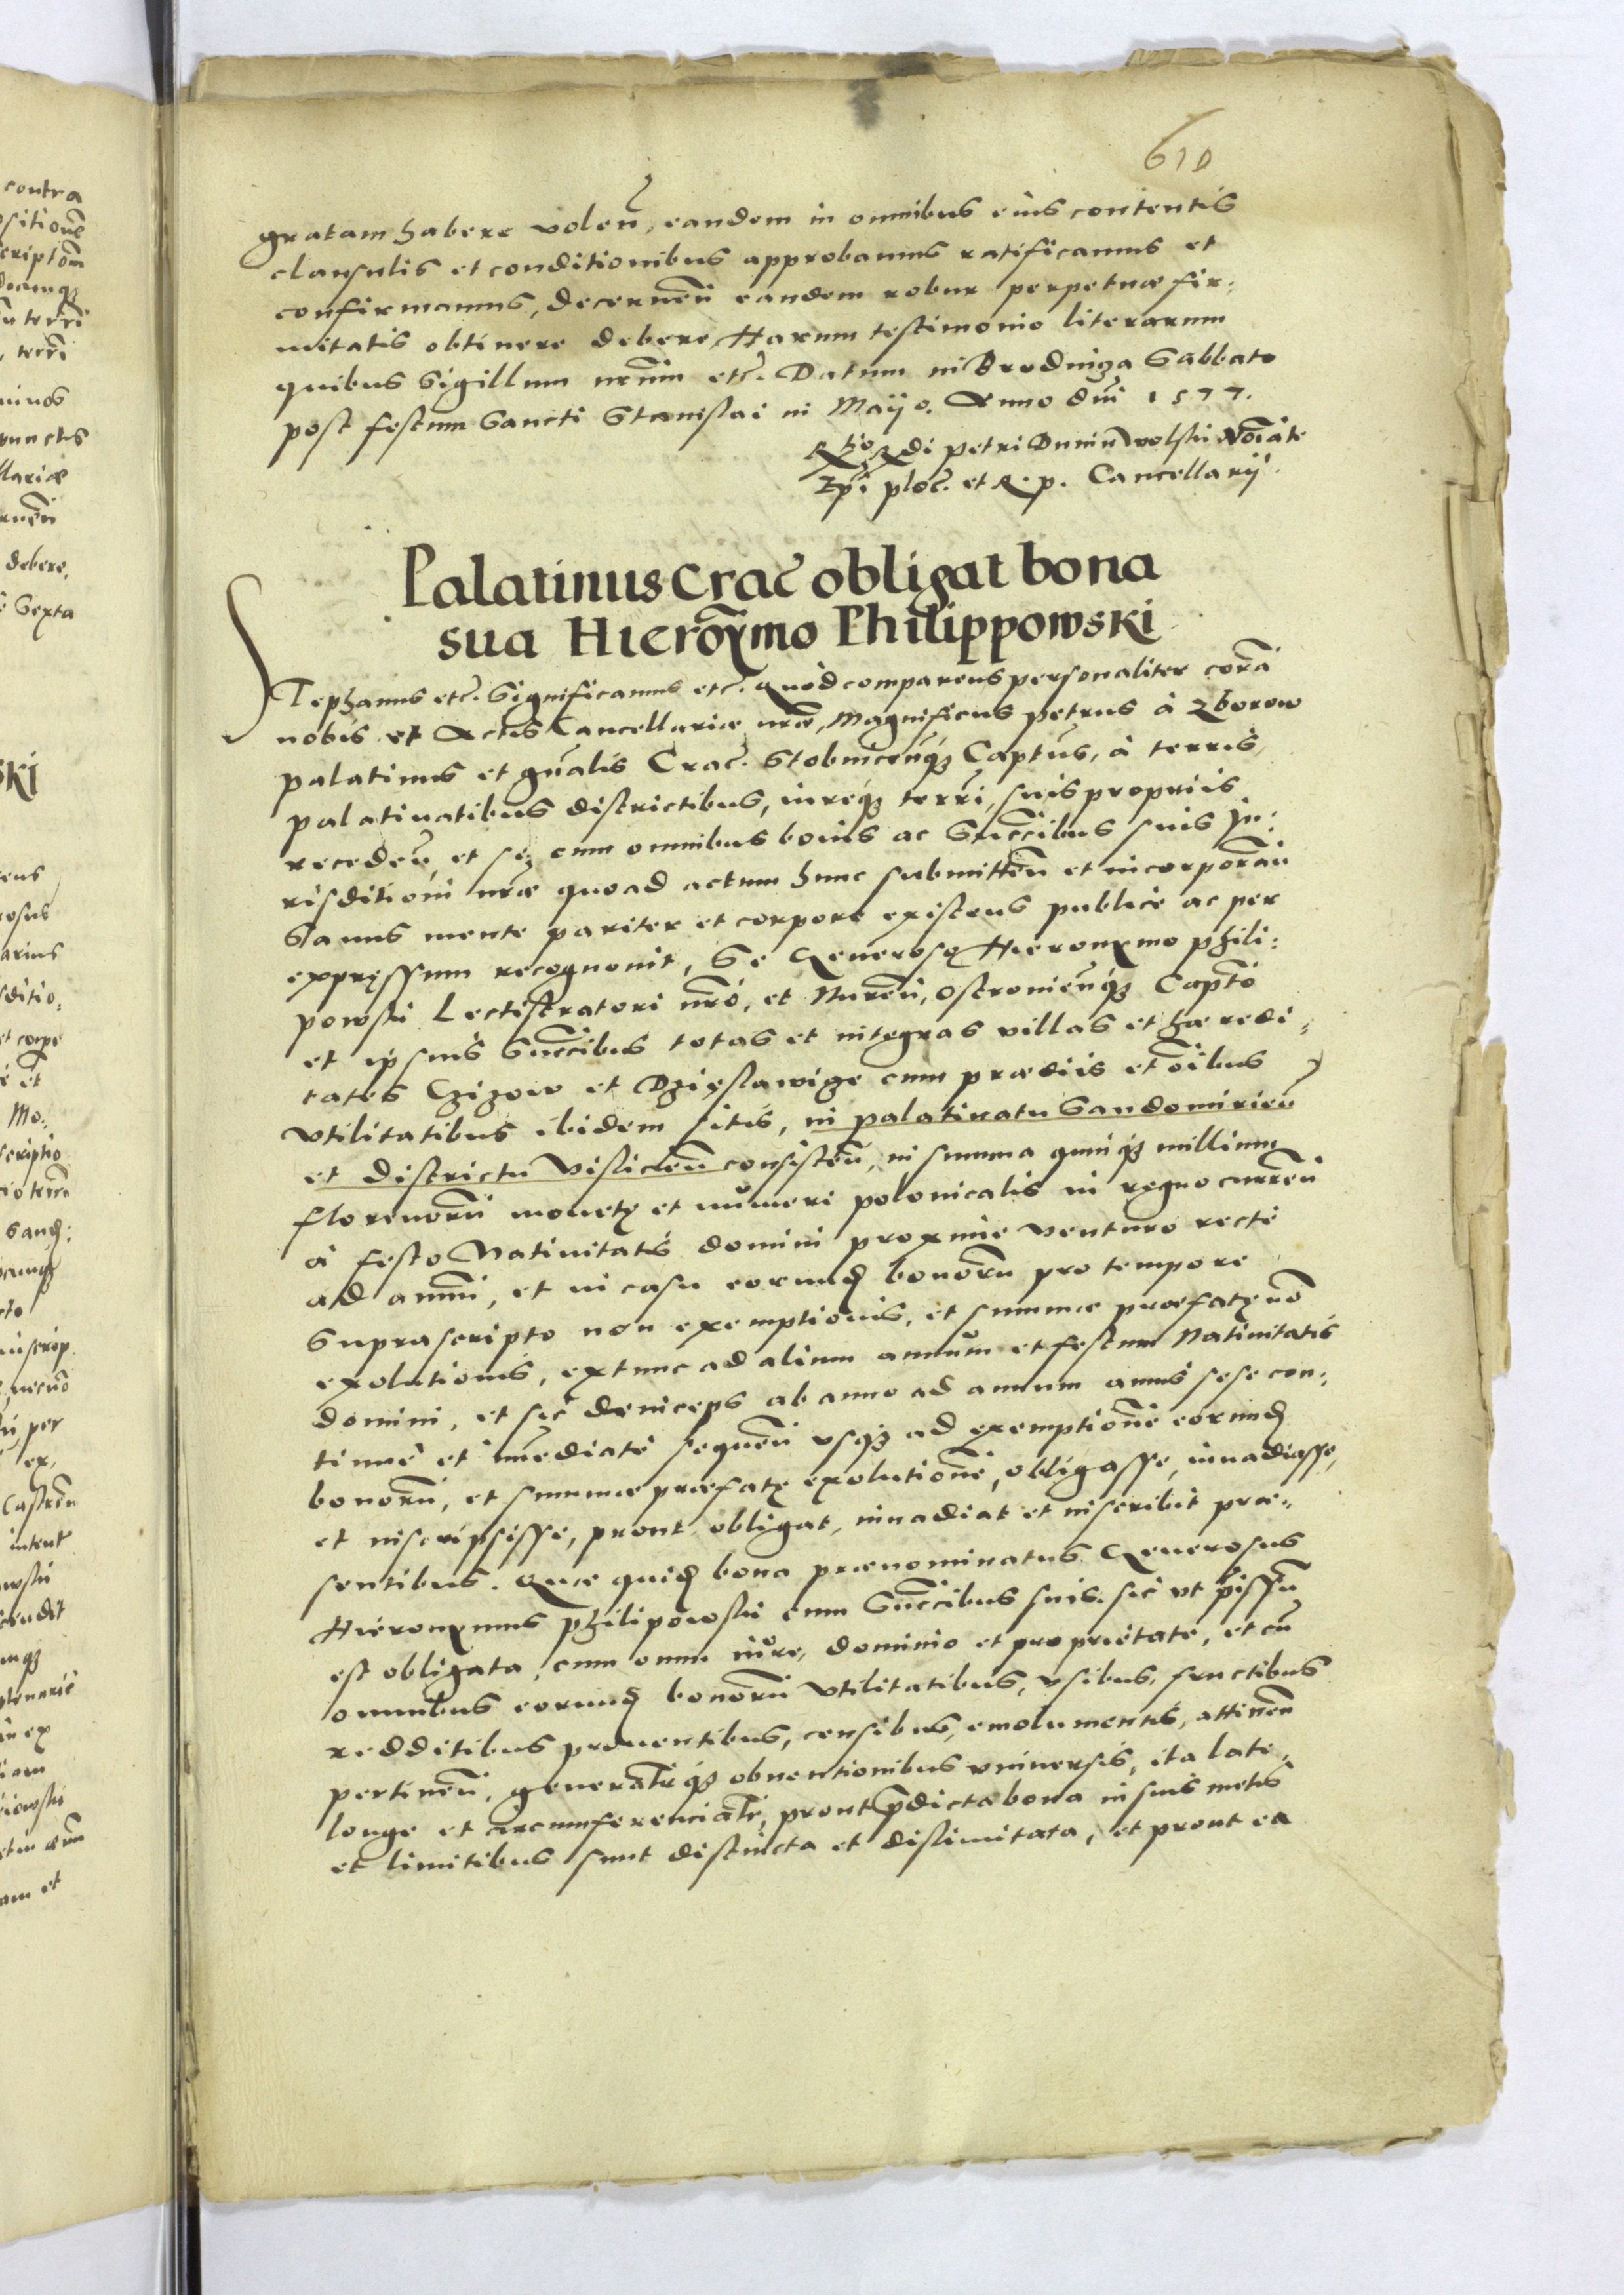 610
gratam habere volen̄, eandem in omnibus eius contentis
clausulis et conditionibus approbamus ratificamus et
confirmamus, decernen̄ eandem robur perpetuæ fir:
mitatis obtinere debere, Harum testimonio literarum
quibus Sigillum nr̄um etc̄. Datum in Brodnicza Sabbato
post festum Sancti Stanislai in Maÿo. Anno dn̄i 1577.
Rtio Rdi Petri Dunin Wolski Noiāte
Epī ploc̄. et R. p. Cancellarÿ
Palatinus Crac̄ obligat bona
sua Hieronȳmo Philippowski
Stephanus etc̄. Significamus etc̄. Quòd comparens personaliter corā
nobis et Actis Cancellariæ nr̄æ, Magnificus Petrus à Zborow
palatinus et gn̄alis Crac̄. Stobnicen̄q́ꝫ Captūs, à terris,
palatinatibus districtibus, iureq́ꝫ terrī, suis propriis
receden̄, et sę cum omnibus bonis ac Succ̄ibus suis Ju:
risditioni nr̄æ quoad actum hunc submitten̄ et incorporan̄
Sanus mente pariter et corpore existens publicè ac per
expręssum recognouit, Se Generoso Hieronymo Phili:
powski Lectistratori nr̄o, et Nuren̄, Ostrouien̄q́ꝫ Captō
et ipsius Succ̄ibus totas et integras villas et hæredi:
tates Czizow et Dzięslawicze cum prædiis et oībus
vtilitatibus ibidem sitis, in palatinatu Sandomirien̄
et districtu Vislicien̄ consisten̄, in summa quinq́ꝫ millium
florenorū monetę et numeri polonicalis in regno curren̄
à festo Natiuitatis domini proximè venturo rectè
ad annū, et in casu eorund̄ bonorū pro tempore
Suprascripto non exemptionis, et summæ præfatę nō
exolutionis, extunc ad alium annum et festum Natiuitatis
domini, et sic deinceps ab anno ad annum annis sese con:
tinuè et imediatè sequen̄ vsqꝫ ad exemptionē eorund̄
bonorū, et summæ præfatę exolutionē, obligasse, inuadiasse,
et inscripsisse, prout obligat, inuadiat et inscribit præ:
sentibus. Quæ quid̄ bona prænominatus Generosus
Hieronymus Philipowski cum Succ̄ibus suis. sic vt p̄issum
est obligata, cum omni iure, dominio et proprietate, et cū
omnibus eorund̄ bonorū vtilitatibus, vsibus, fructibus
redditibus prouentibus, censibus, emolumentis, attinen̄
pertinen̄, generatr̄q́ꝫ obuentionibus vniuersis, ita latè
longe et circumferenciatr̄, prout p̄dicta bona in suis metis
et limitibus sunt distincta et dislimitata, et prout ea